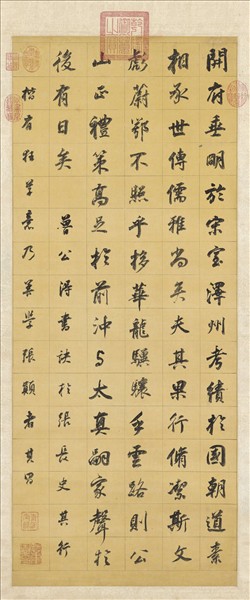 開府垂明於宋室澤州考績於國朝道素
相承世傳儒雅尚矣夫其果行脩潔斯文
彪蔚鄂不照乎栘華龍驥驤乎雲路則公
山正禮策高足於前沖与太真嗣家聲於
後有日矣 魯公得書訣於張長史其行
楷有狂草意乃善學張顛者 其昌